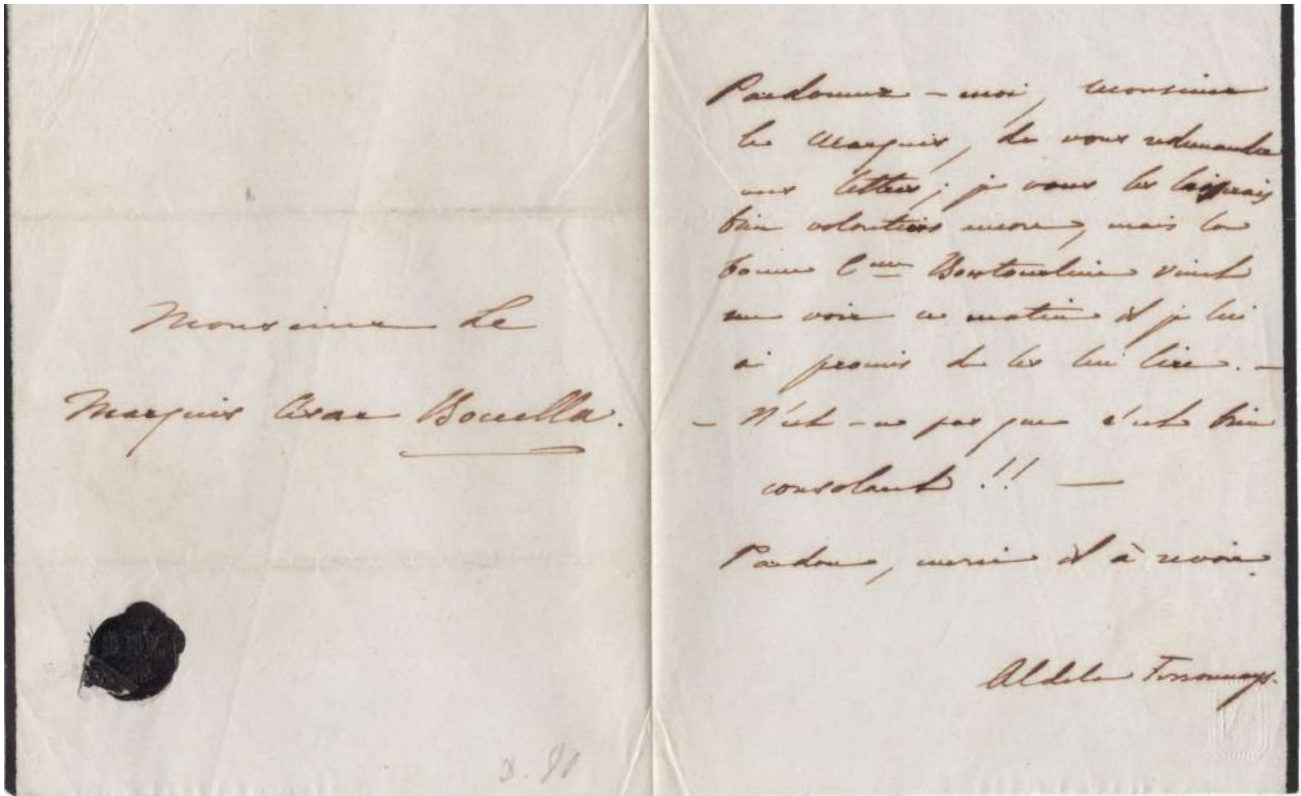 Monsieur Le
Marquis César Boccella.
Pardonnez-moi, monsieur
le Marquis, de vous redemander
mes lettres; je vous les laisserais
bien volontiers encore, mais la
bonne C^sse vient
me voir ce matin et je lui
ai promis de les lui lire. —
— N'est-ce pas que c'est bien
consolant!! —
Pardon, merci et à revoir.